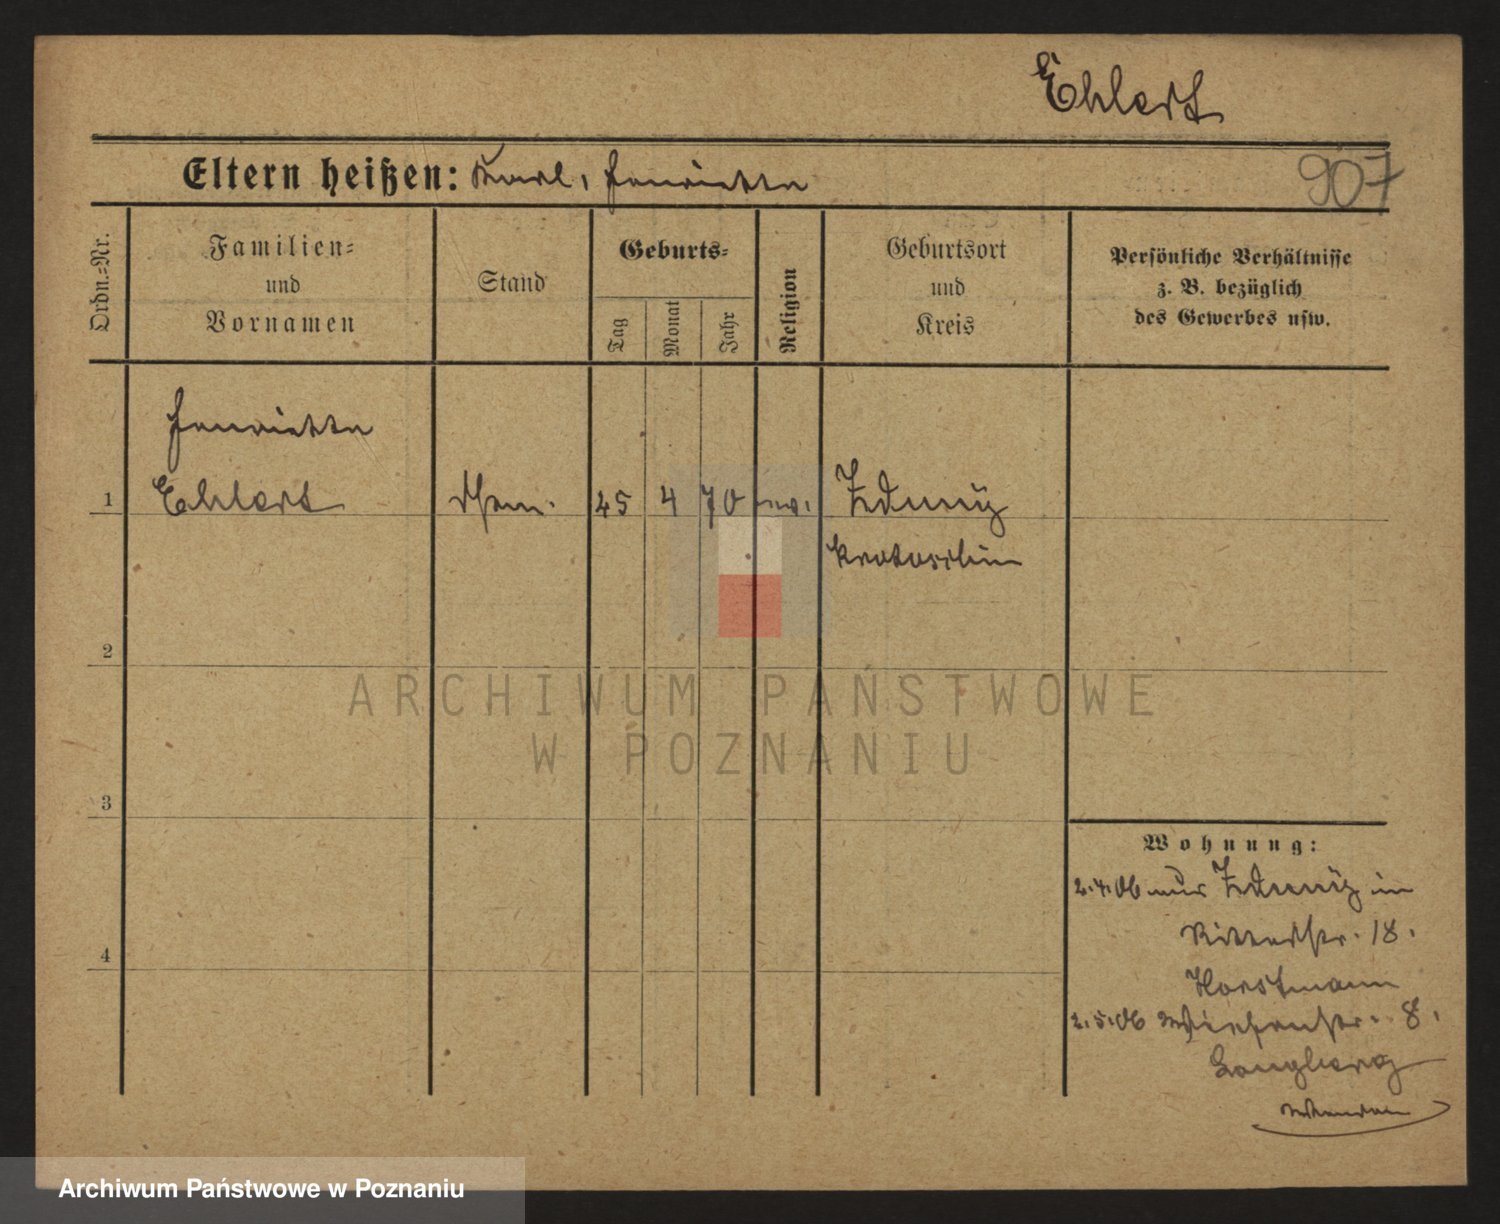 Ehlert
Eltern heißen: Karl, Henriette
907
Ordn.=Nr.
Familien=
und
Vornamen
Stand
Geburts=
Tag
Monat
Jahr
Religion
Geburtsort
und
Kreis
Persönliche Verhältnisse
z. B. bezüglich
des Gewerbes usw.
Henriette
1 Ehlert 4 70 ev. Zduny
Krotoschin
2
3
4
Wohnung:
2.4.06 aus Zduny in
Ritterstr. 18.
Horstmann
2.5.06 8.
ARCHIWUM PAŃSTWOWE
W POZNANIU
Archiwum Państwowe w Poznaniu